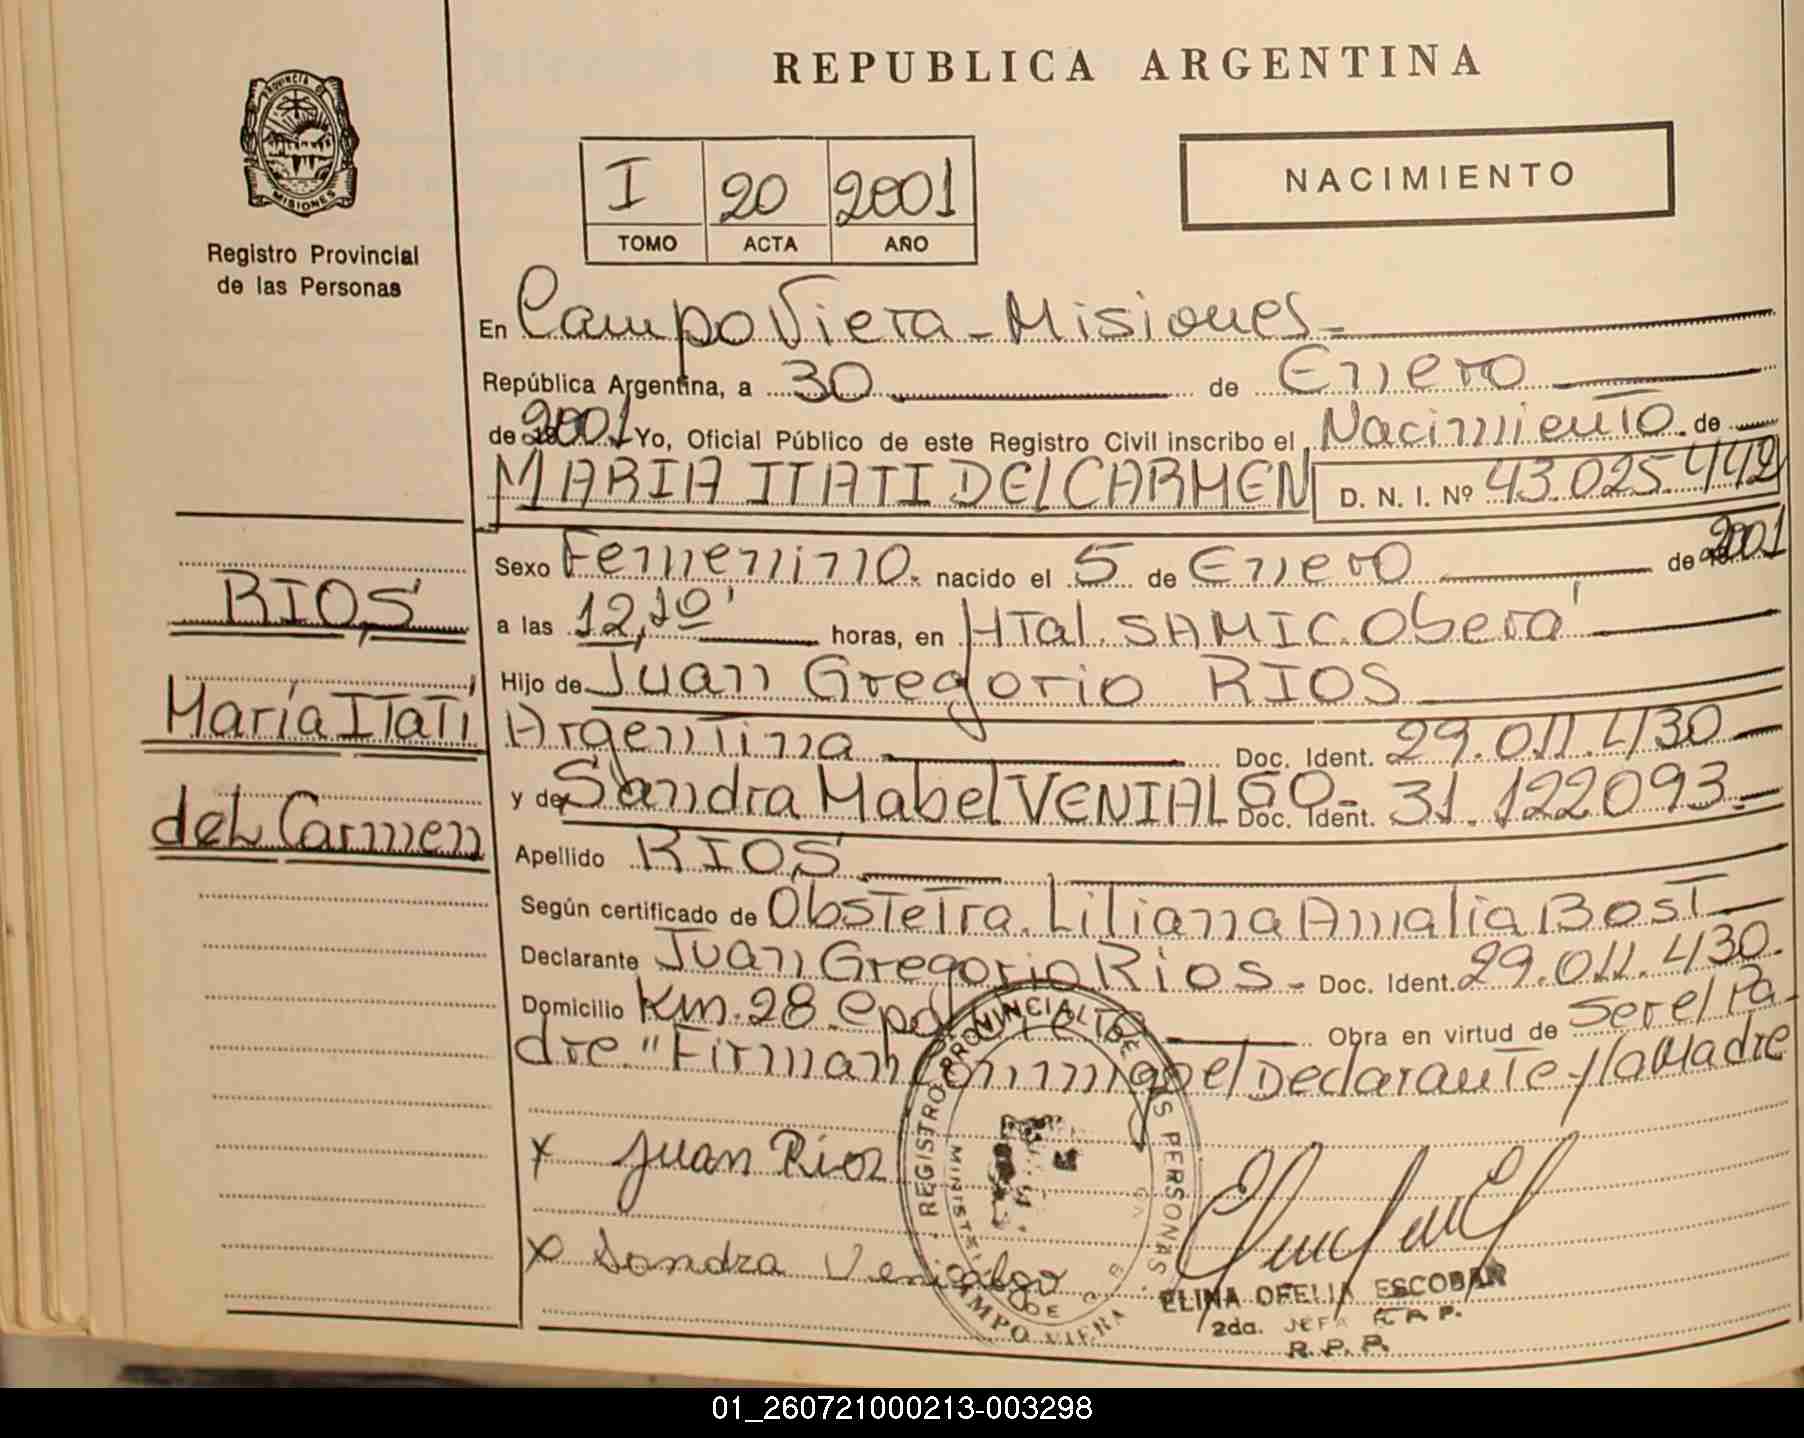 REPUBLICA ARGENTINA
PROVINCIA DE
MISIONES
Registro Provincial
de las Personas
I 20 2001
TOMO ACTA AÑO
NACIMIENTO
En Campo Viera - Misiones
República Argentina, a 30 de Enero
de 2001 Yo, Oficial Público de este Registro Civil inscribo el Nacimiento de
MARIA ITATI DEL CARMEN D. N. I. Nº 43.025.442
Sexo Femenino. nacido el 5 de Enero de 2001
a las 12,10' horas, en HTal. SAMIC. Oberá
Hijo de Juan Gregorio RIOS
Argentina Doc. Ident. 29.011.430
y de Sandra Mabel VENIALGO - Doc. Ident. 31.122093.
Apellido RIOS
Según certificado de Obstetra. Liliana Amalia Bost
Declarante Juan Gregorio Rios - Doc. Ident. 29.011.430.
Domicilio Km. 28. Obra en virtud de Ser el Pa-
dre. "Firman Conmigo el Declarante y la Madre
RIOS
María Itatí
del Carmen
x Juan Rios
x Sandra Venialgo
REGISTRO PROVINCIAL DE LAS PERSONAS
CAMPO VIERA
ELINA OFELIA ESCOBAR
2da. JEFA
R.P.P.
01_260721000213-003298